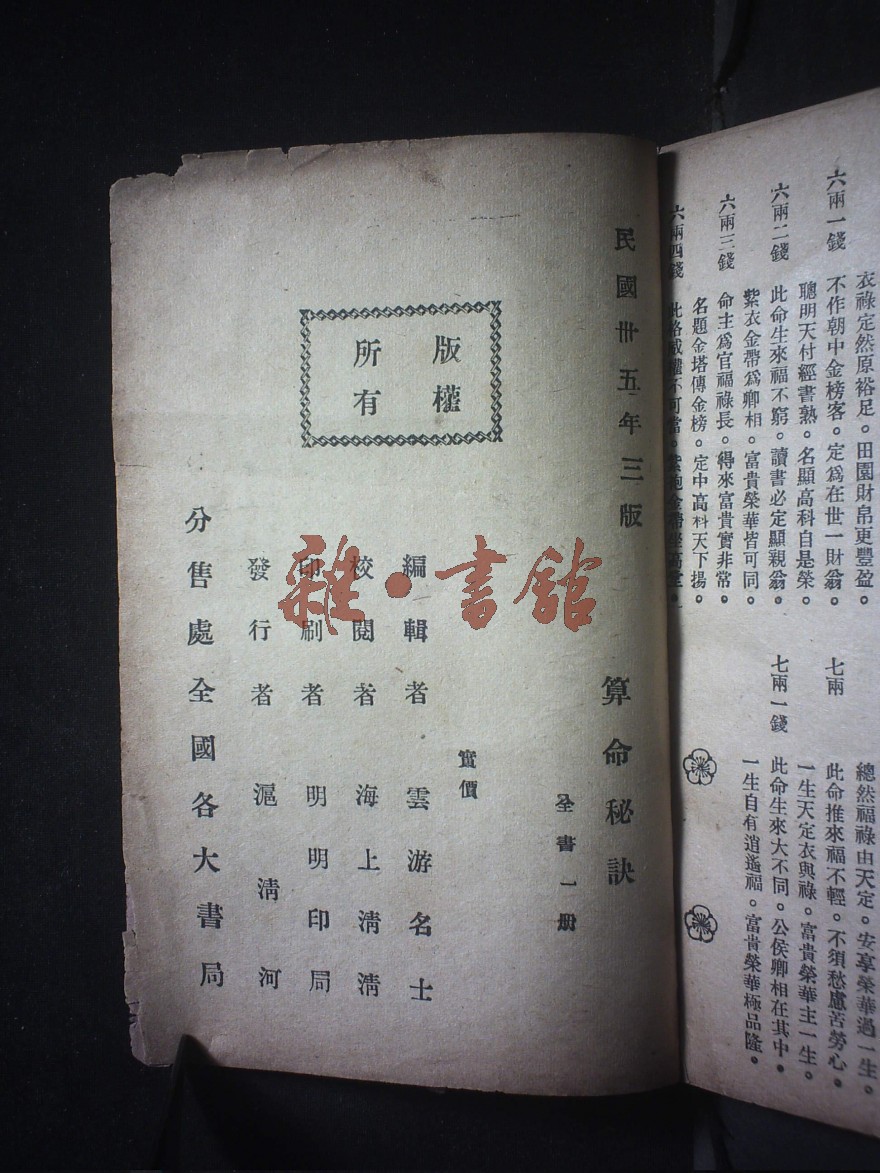 衣祿定然原裕足。田園財帛更豐盈。
六兩一錢 不作朝中金榜客。定為在世一財翁。
聰明天付經書熟。名顯高科自是榮。
六兩二錢 此命生來福不窮。讀書必定顯親翁。
紫衣金帶為卿相。富貴榮華皆可同。
六兩三錢 命主為官福祿長。得來富貴實非常。
名題金塔傳金榜。定中高科天下揚。
六兩四錢 此格威權不可當。紫袍金帶坐高堂。
總然福祿由天定。安享榮華過一生。
七兩 此命推來福不輕。不須愁慮苦勞心。
一生天定衣與祿。富貴榮華主一生。
七兩一錢 此命生來大不同。公侯卿相在其中。
一生自有逍遙福。富貴榮華極品隆。
民國卅五年三版
算命秘訣
全書一册
實價
版權
所有
編輯者 雲游名士
校閱者 海上清清
印刷者 明明印局
發行者 滬清河
分售處全國各大書局
雜·書館